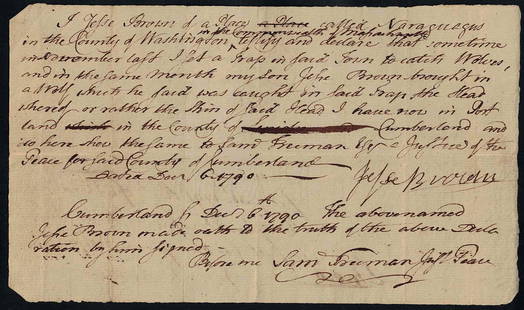 I Jesse Brown of a Place a Place called Naraguagus
in the County of Washington in the Commonwealth of Massachusetts testify and declare that sometime
in November last I set a trap in said Town to catch Wolves,
and in the same month my son Jesse Brown brought in
a Wolf which he said was caught in said trap the Head
whereof or rather the Skin of said Head I have now in Port
land which in the County of Cumberland and
so here shew the same to Saml Freeman Esqr a Justice of the
Peace for said County of Cumberland
Dated Decr 6. 1790 —
Jesse Brown
Cumberland ss Decr 6th 1790 The abovenamed
Jesse Brown made oath to the truth of the above Decla
ration by him signed
Before me Saml Freeman Just. Peace